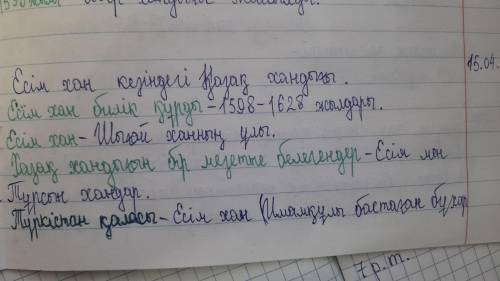 Есім хан кезіндегі Қазақ хандығы.
15.04.
Есім хан билік құрды-1598-1628 жылдары.
Есім хан-Шығай ханның ұлы.
Қазақ хандығын бір мезетте билегендер-Есім мен
Тұрсын хандар.
Түркістан қаласы-Есім хан (Имамқұлы бастаған бұхар
7 р.т.